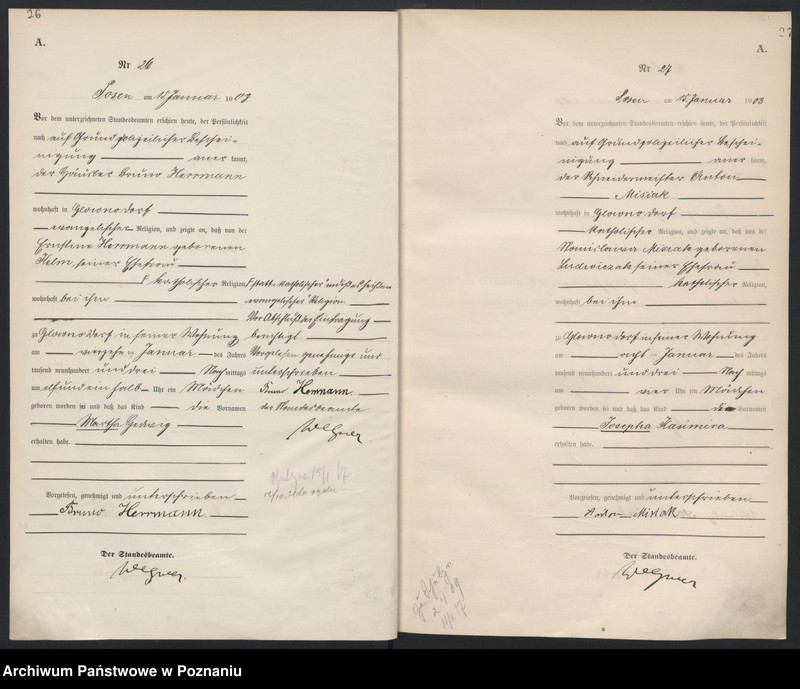 26
A.
Nr 26
Posen am 15 Januar 1903
Vor dem unterzeichneten Standesbeamten erschien heute, der Persönlichkeit
nach auf Grund polizeilicher Beschei-
nigung aner kannt,
der Häusler Bruno Herrmann
wohnhaft in Glowno Dorf
evangelischer Religion, und zeigte an, daß von der
Ernstine Herrmann geborenen
Helm, seiner Ehefrau
F katholischer Religion
wohnhaft bei ihm
zu Glowno Dorf in seiner Wohnung
am Januar des Jahres
tausend neunhundert und drei Nach mittags
um elf und ein halb Uhr ein Mädchen
geboren worden sei und daß das Kind die Vornamen
Martha Hedwig
erhalten habe.
Vorgelesen, genehmigt und unterschrieben
Bruno Herrmann.
Der Standesbeamte.
Wegner.
F statt "katholischer" muß es heißen
"evangelischer" Religion.
Vor Abschluß der Eintragung
berichtigt.
Vorgelesen genehmigt und
unterschrieben
Bruno Herrmann.
der Standesbeamte
Wegner
27
A.
Nr 27
Posen am 15 Januar 1903
Vor dem unterzeichneten Standesbeamten erschien heute, der Persönlichkeit
nach auf Grund polizeilicher Beschei-
nigung aner kannt,
der Schneidermeister Anton
Misiak
wohnhaft in Glowno Dorf
katholischer Religion, und zeigte an, daß von der
Stanislawa Misiak geborenen
Ludwiczak seiner Ehefrau
katholischer Religion,
wohnhaft bei ihm
zu Glowno Dorf in seiner Wohnung
am acht ten Januar des Jahres
tausend neunhundert und drei Nach mittags
um vier Uhr ein Mädchen
geboren worden sei und daß das Kind die Vornamen
Josepha Kasimira
erhalten habe.
Vorgelesen, genehmigt und unterschrieben
Anton Misiak
Der Standesbeamte.
Wegner
Archiwum Państwowe w Poznaniu